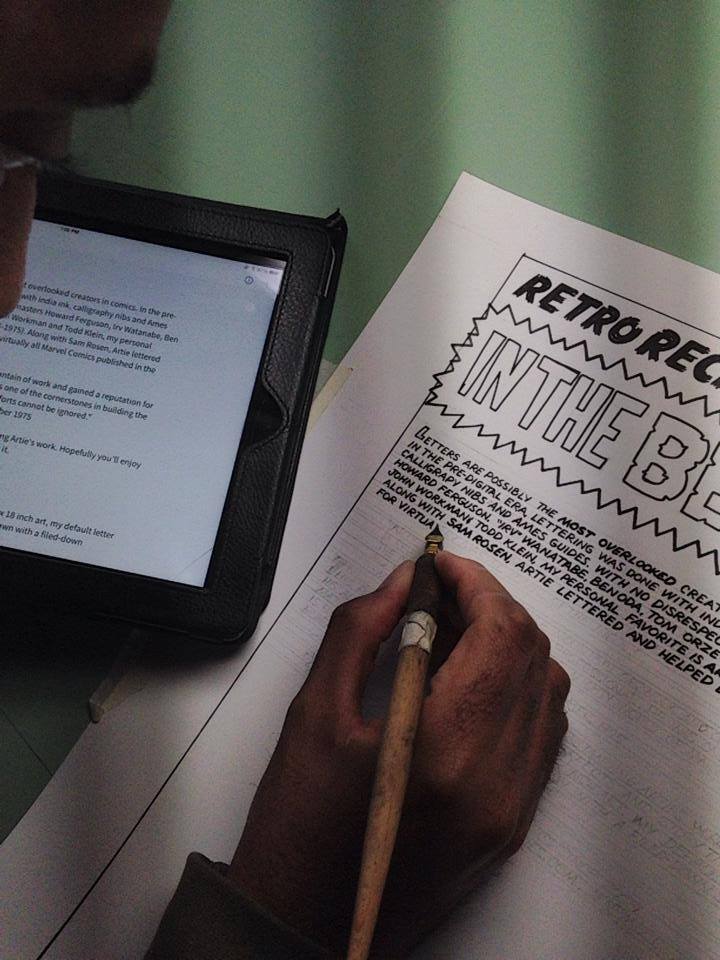 t overlooked creators in comics. In the pre-
with india ink, calligraphy nibs and Ames
masters Howard Ferguson, Irv Watanabe, Ben
Workman and Todd Klein, my personal
-1975). Along with Sam Rosen, Artie lettered
virtually all Marvel Comics published in the
ntain of work and gained a reputation for
s one of the cornerstones in building the
forts cannot be ignored."
ber 1975
ng Artie's work. Hopefully you'll enjoy
it.
x 18 inch art, my default letter
wn with a filed-down
RETRO REC
IN THE BE
LETTERS ARE POSSIBLY THE MOST OVERLOOKED CREAT
IN THE PRE-DIGITAL ERA, LETTERING WAS DONE WITH IND
CALLIGRAPY NIBS AND AMES GUIDES. WITH NO DISRESPEC
HOWARD FERGUSON, "IRV" WANATABE, BEN ODA, TOM ORZE
JOHN WORKMAN TODD KLEIN, MY PERSONAL FAVORITE IS AR
ALONG WITH SAM ROSEN, ARTIE LETTERED AND HELPED
FOR VIRTUA